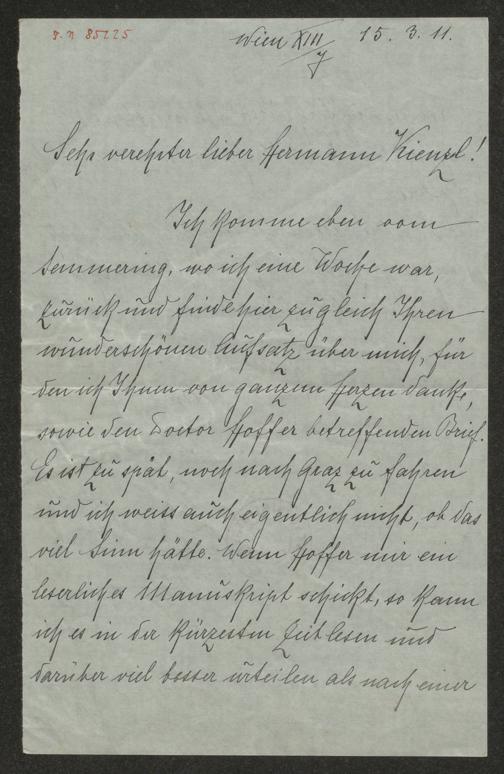 Wien XIII/7 15. 3. 11.
Sehr verehrter lieber Hermann Kienzl!
Ich komme eben vom
Semmering, wo ich eine Woche war,
zurück und finde hier zugleich Ihren
wunderschönen Aufsatz über mich, für
den ich Ihnen von ganzem Herzen danke,
sowie den Doctor Hoffer betreffenden Brief.
Es ist zu spät, noch nach Graz zu fahren
und ich weiss auch eigentlich nicht, ob das
viel Sinn hätte. Wenn Hoffer mir ein
leserliches Manuskript schickt, so kann
ich es in der kürzesten Zeit lesen und
darüber viel besser urteilen als nach einer